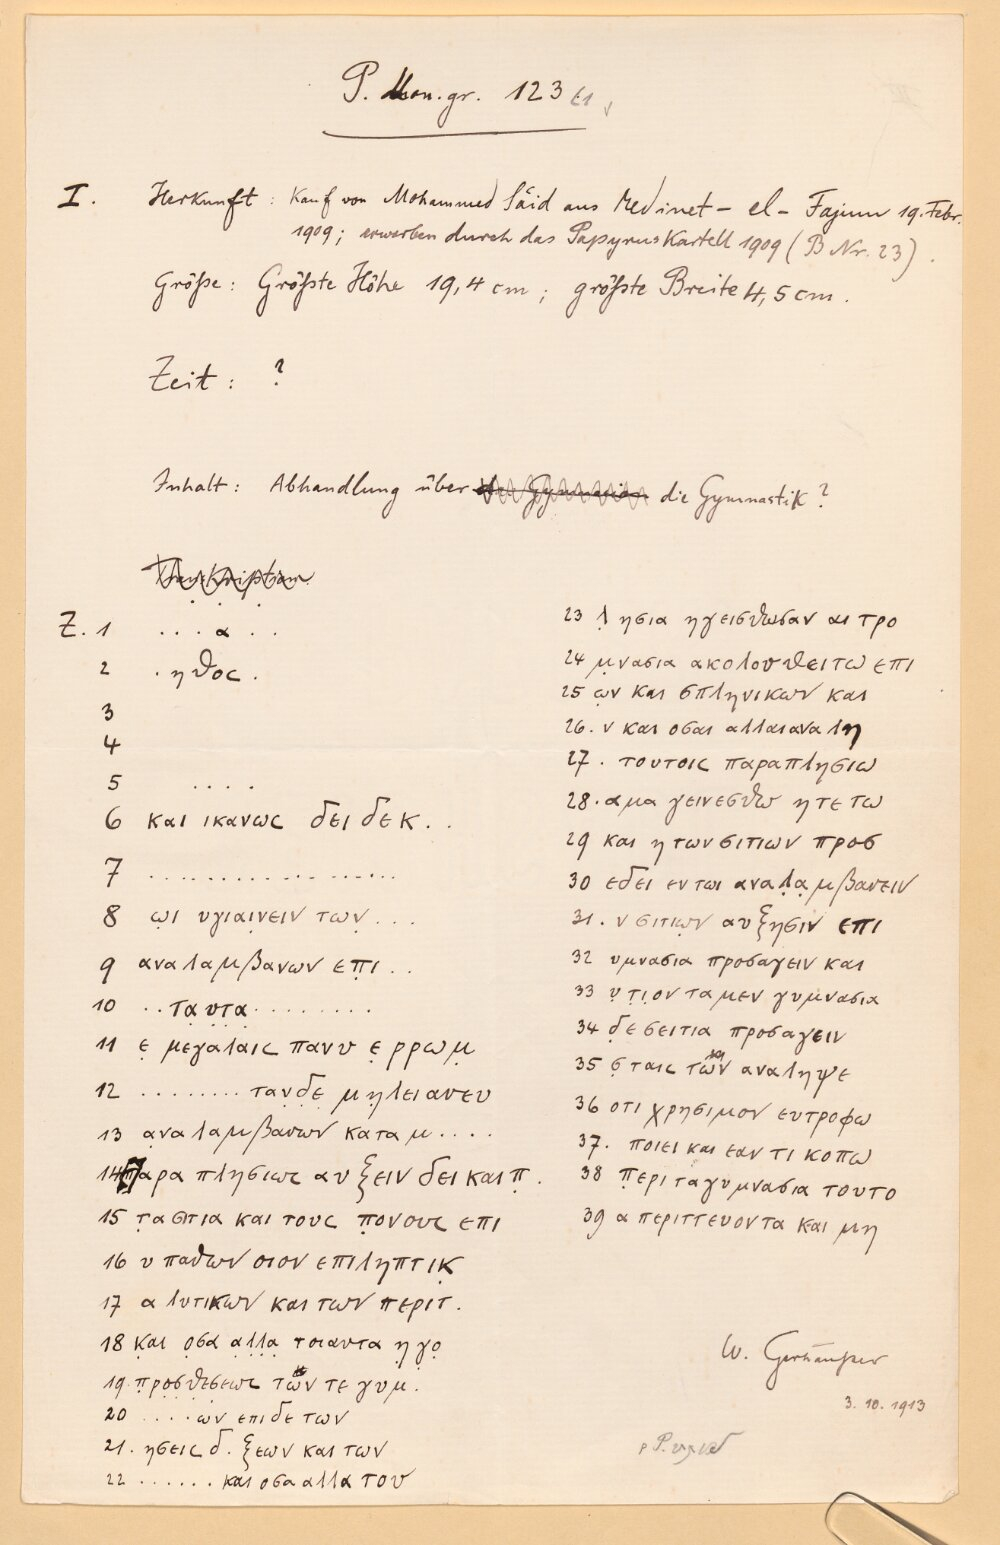 P. Mon. gr. 123
I. Herkunft: Kauf von Mohammed Säid aus Medinet-el-Fajum 19. Febr.
1909; erworben durch das Papyruskartell 1909 (B Nr. 23).
Größe: Größte Höhe 19,4 cm; größte Breite 4,5 cm.
Zeit: ?
Inhalt: Abhandlung über die Gymnastik?
Z. 1 ...α..
2 .ηθος.
3
4
5 ....
6 και ικανως δει δε κ..
7 ..................
8 ωι υγιαινειν των...
9 αναλαμβανων επι..
10 ..ταυτα........
11 ε μεγαλαις πανυ ερρωμ
12 ........τανδε μηλειανευ
13 αναλαμβανων κατα μ....
14 παρα πλησιως αυξειν δει και π.
15 τα σιτια και τους πονους επι
16 υ παθων οιον επιληπτικ
17 αλυτικων και των περιτ.
18 και οσα αλλα τοιαυτα η γο
19. προσθεσεως των τε γυμ.
20 ....ων επι δε των
21. ησεις δ.ξεων και των
22 ......και οσα αλλα του
23 λησια ηγεισθωσαν αι τρο
24 μνασια ακολουθειτω επι
25 ων και σπληνικων και
26. ν και οσαι αλλαι αναλη
27. τουτοις παραπλησιω
28. αμα γεινεσθω η τε τω
29 και η των σιτιων προσ
30 εδει εν τωι αναλαμβανειν
31. ν σιτιων αυξησιν επι
32 υμνασια προσαγειν και
33 υτιον τα μεν γυμνασια
34 δε σειτια προσαγειν
35 σταις των αναληψε
36 οτι χρησιμον ευτροφω
37. ποιει και εαν τι κοπω
38 περι τα γυμνασια τουτο
39 α περιττευοντα και μη
W. Gerhäußer
3. 10. 1913